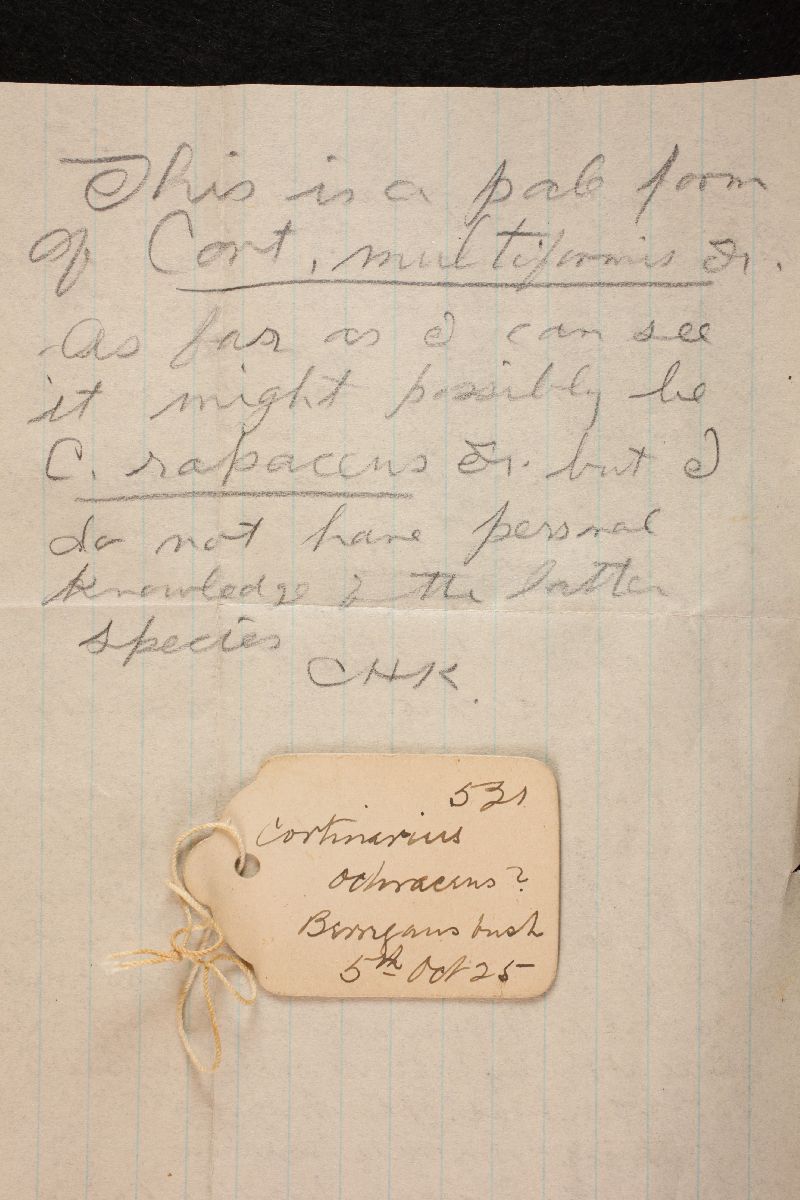 This is a pale form
of Cort. multiformis Fr.
As far as I can see
it might possibly be
C. rapaceus Fr. but I
do not have personal
knowledge of the latter
species
CHK.
531
Cortinarius
Ochraceus?
Berrigans bush
5th Oct 25